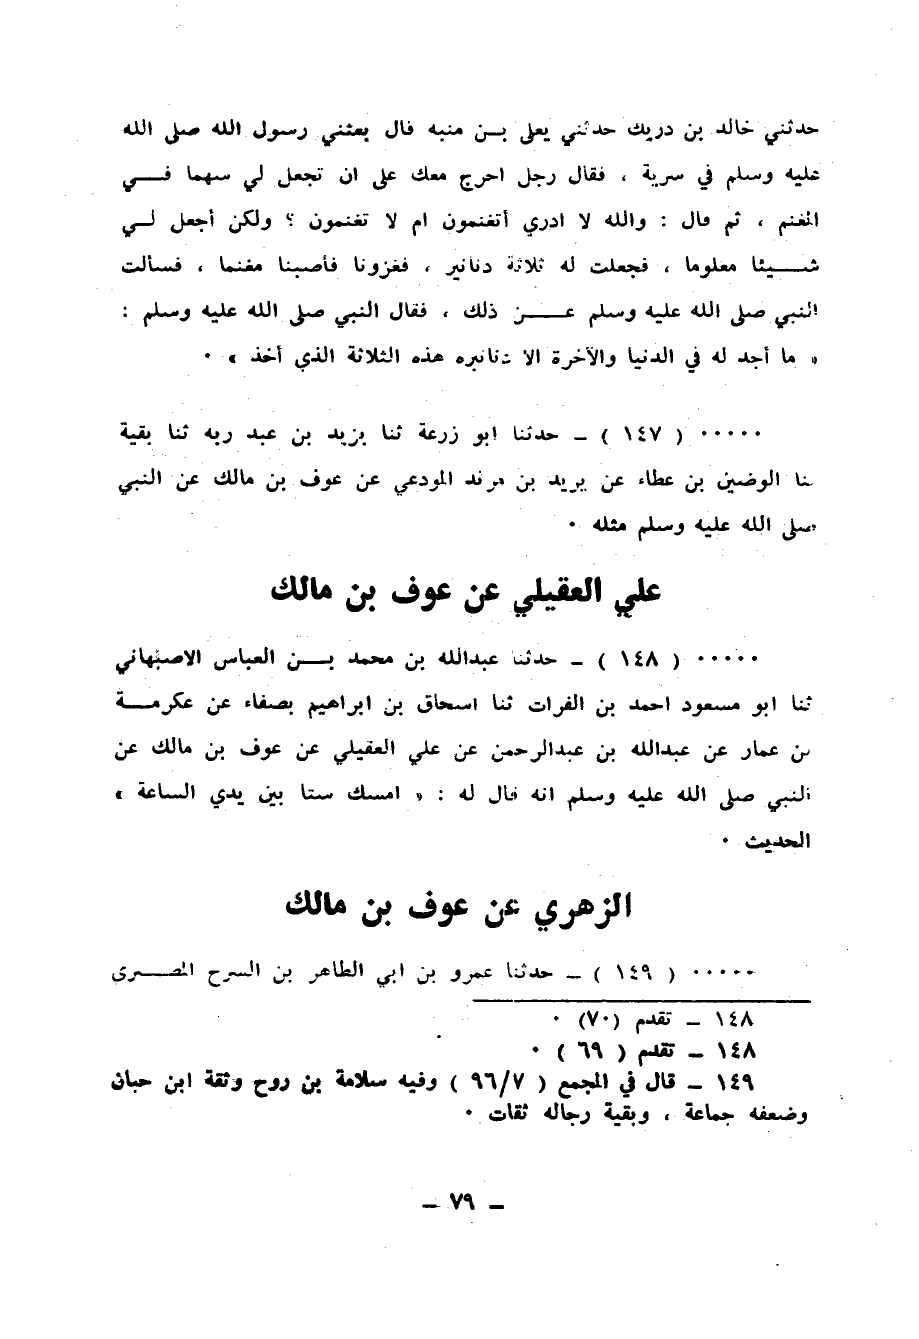 حدثني خالد بن دريك حدثني يعلى بــن منبه قال بعثني رسول الله صلى الله
عليه وسلم في سرية ، فقال رجل احرج معك على ان تجعل لي سهما فــي
المغنم ، ثم قال : والله لا ادري أتغنمون ام لا تغنمون ؟ ولكن أجعل لــي
شــيئا معلوما ، فجعلت له ثلاثة دنانير ، فغزونا فأصبنا مغنما ، فسألت
النبي صلى الله عليه وسلم عــن ذلك ، فقال النبي صلى الله عليه وسلم :
« ما أجد له في الدنيا والآخرة الا دنانيره هذه الثلاثة الذي أخذ » ٠
٠٠٠٠٠ ( ١٤٧ ) ـ حدثنا ابو زرعة ثنا يزيد بن عبد ربه ثنا بقية
ثنا الوضين بن عطاء عن يريد بن مرثد المودعي عن عوف بن مالك عن النبي
صلى الله عليه وسلم مثله ٠
علي العقيلي عن عوف بن مالك
٠٠٠٠٠ ( ١٤٨ ) ـ حدثنا عبدالله بن محمد بــن العباس الاصبهاني
ثنا ابو مسعود احمد بن الفرات ثنا اسحاق بن ابراهيم بصفاء عن عكرمــة
بن عمار عن عبدالله بن عبدالرحمن عن علي العقيلي عن عوف بن مالك عن
النبي صلى الله عليه وسلم انه قال له : « امسك ستا بين يدي الساعة »
الحديث ٠
الزهري عن عوف بن مالك
٠٠٠٠٠ ( ١٤٩ ) ـ حدثنا عمرو بن ابي الطاهر بن السرح المصــرى
١٤٨ ـ تقدم (٧٠) ٠
١٤٨ ـ تقدم ( ٦٩ ) ٠
١٤٩ ـ قال في المجمع ( ٩٦/٧ ) وفيه سلامة بن روح وثقة ابن حبان
وضعفه جماعة ، وبقية رجاله ثقات ٠
ـ ٧٩ ـ